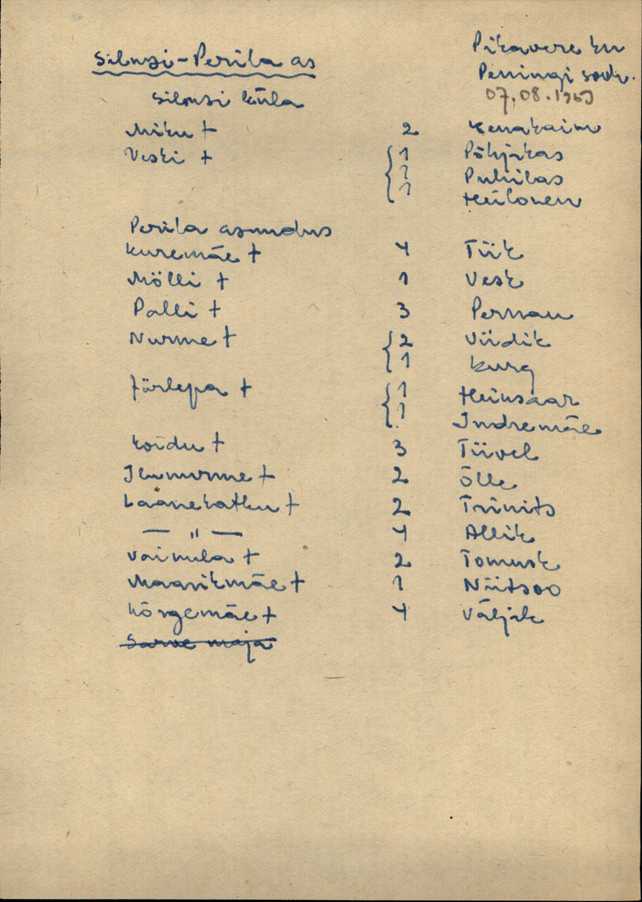 Silmsi-Perila as
Pikavere kn
Peningi sovh.
07.08.1963
Silmsi küla
Miku + 2 Kenakaim
Veski + { 1 Põhjakas
1 Puhilas
1 Heilonen
Perila asundus
Kuremäe + 4 Tiik
Mölli + 1 Vesk
Palli + 3 Pernau
Nurme + { 2 Viidik
1 Kurg
Järlepa + { 1 Heinsaar
1 Indremäe
Koidu + 3 Tiivel
Ilunurme + 2 Õlle
Laanekatku + 2 Triinits
— " — 4 Allik
Vainula + 2 Tomusk
Maasikmäe + 1 Näitsoo
Kõrgemäe + 4 Väljak
Sarve maja